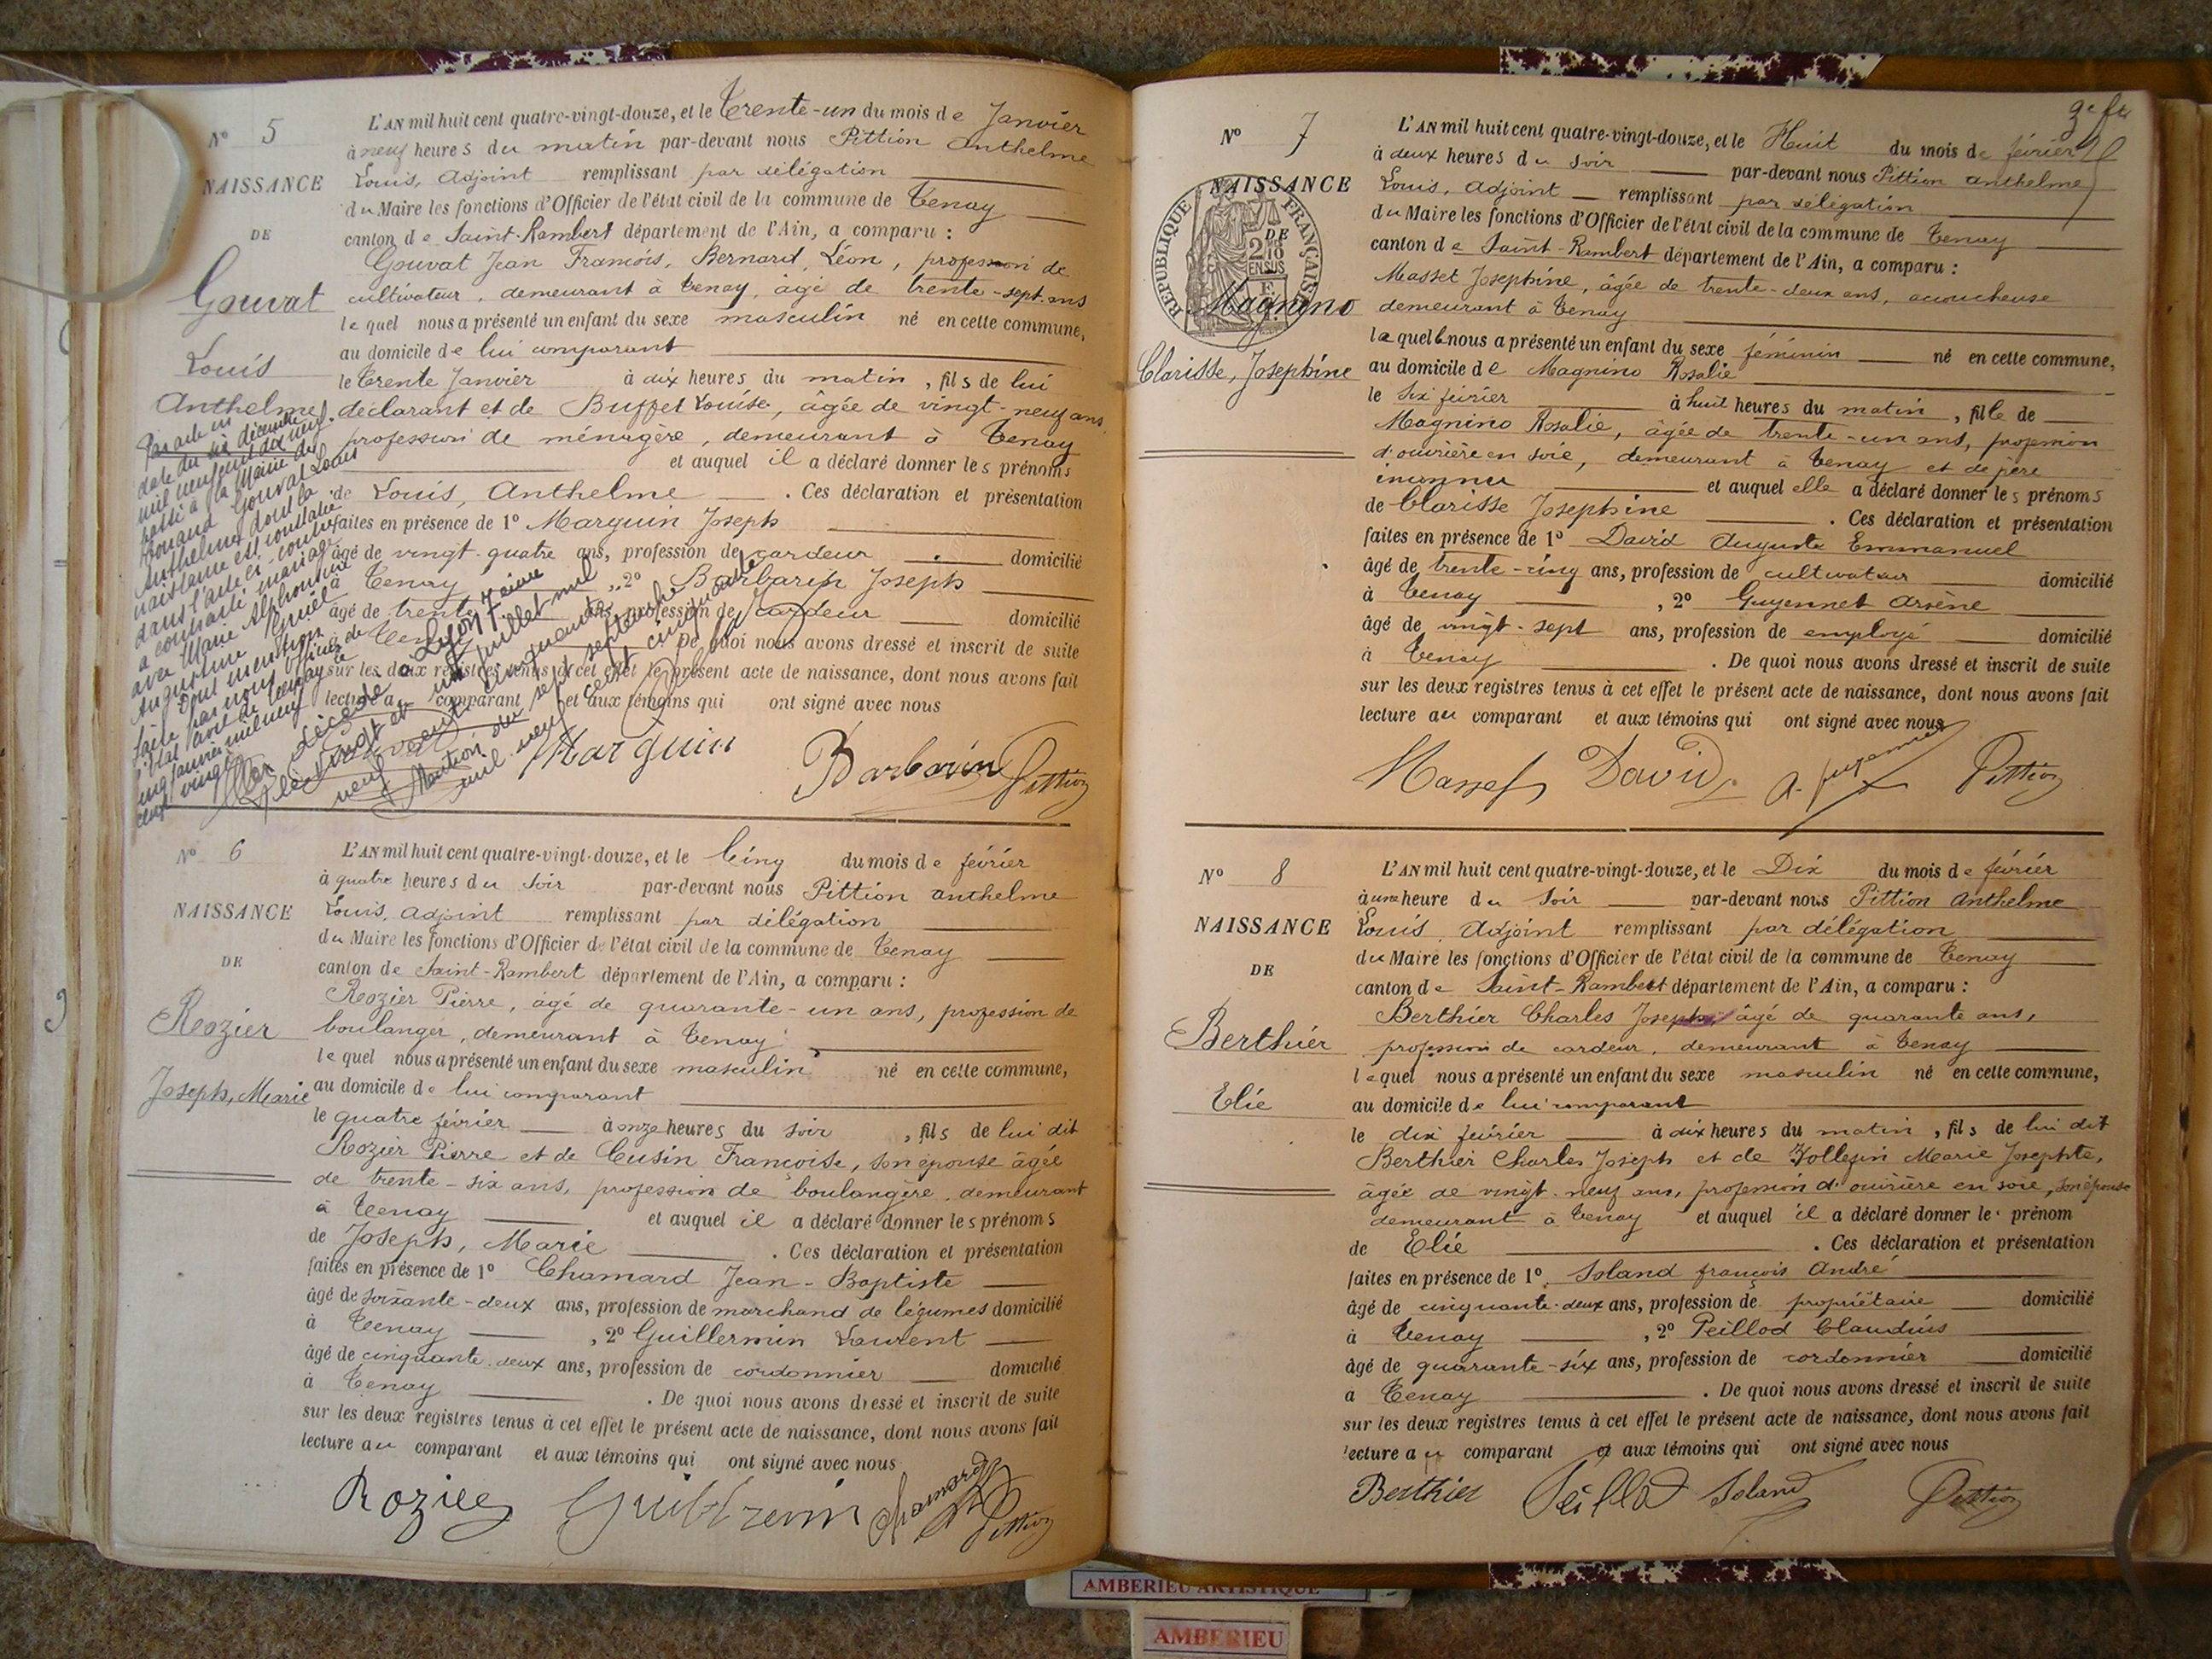 N° 5
NAISSANCE
DE
Gouvat
Louis
Anthelme
L'AN mil huit cent quatre-vingt-douze, et le Trente-un du mois de Janvier
à neuf heures du matin par-devant nous Pittion Anthelme
Louis, Adjoint remplissant par délégation
du Maire les fonctions d'Officier de l'état civil de la commune de Tenay
canton de Saint-Rambert département de l'Ain, a comparu :
Gouvat Jean François, Bernard, Léon, profession de
cultivateur, demeurant à Tenay, âgé de trente-sept ans
lequel nous a présenté un enfant du sexe masculin né en cette commune,
au domicile de lui comparant
le Trente Janvier à dix heures du matin, fils de lui
déclarant et de Buffet Louise, âgée de vingt-neuf ans
profession de ménagère, demeurant à Tenay
et auquel il a déclaré donner les prénoms
de Louis, Anthelme . Ces déclaration et présentation
faites en présence de 1° Marguin Joseph
âgé de vingt-quatre ans, profession de cardeur domicilié
à Tenay , 2° Barbarin Joseph
âgé de trente ans, profession de cardeur domicilié
à Tenay . De quoi nous avons dressé et inscrit de suite
sur les deux registres tenus à cet effet le présent acte de naissance, dont nous avons fait
lecture au comparant et aux témoins qui ont signé avec nous
Marguin Barbarin Pittion
Par acte en
date du six décembre
mil neuf cent dix neuf
passé à la Mairie de
Gouvat Louis
Anthelme dont la
naissance est constatée
dans l'acte ci-contre
a contracté mariage
avec Marie Alphonsine
Augustine
faite par nous officier de
l'état civil de Tenay le
cinq janvier mil neuf
cent vingt
Décédé à Lyon 7eme
le vingt et un juillet mil
neuf cent cinquante
Mention du sept septembre
mil neuf cent cinquante
N° 6
NAISSANCE
DE
Rozier
Joseph, Marie
L'AN mil huit cent quatre-vingt-douze, et le Cinq du mois de février
à quatre heures du soir par-devant nous Pittion Anthelme
Louis, Adjoint remplissant par délégation
du Maire les fonctions d'Officier de l'état civil de la commune de Tenay
canton de Saint-Rambert département de l'Ain, a comparu :
Rozier Pierre, âgé de quarante-un ans, profession de
boulanger, demeurant à Tenay
lequel nous a présenté un enfant du sexe masculin né en cette commune,
au domicile de lui comparant
le quatre février à onze heures du soir, fils de lui dit
Rozier Pierre et de Cusin Françoise, son épouse âgée
de trente-six ans, profession de boulangère, demeurant
à Tenay et auquel il a déclaré donner les prénoms
de Joseph, Marie . Ces déclaration et présentation
faites en présence de 1° Chamard Jean-Baptiste
âgé de soixante-deux ans, profession de marchand de légumes domicilié
à Tenay , 2° Guillermin Laurent
âgé de cinquante-deux ans, profession de cordonnier domicilié
à Tenay . De quoi nous avons dressé et inscrit de suite
sur les deux registres tenus à cet effet le présent acte de naissance, dont nous avons fait
lecture au comparant et aux témoins qui ont signé avec nous
Rozier Guillermin Chamard Pittion
N° 7
NAISSANCE
DE
Magnino
Clarisse, Josephine
REPUBLIQUE FRANÇAISE
L'AN mil huit cent quatre-vingt-douze, et le Huit du mois de février
à deux heures du soir par-devant nous Pittion Anthelme
Louis, Adjoint remplissant par délégation
du Maire les fonctions d'Officier de l'état civil de la commune de Tenay
canton de Saint-Rambert département de l'Ain, a comparu :
Masset Josephine, âgée de trente-deux ans, accoucheuse
demeurant à Tenay
laquelle nous a présenté un enfant du sexe féminin né en cette commune,
au domicile de Magnino Rosalie
le Six février à huit heures du matin, fille de
Magnino Rosalie, âgée de trente-un ans, profession
d'ouvrière en soie, demeurant à Tenay et de père
inconnu et auquel elle a déclaré donner les prénoms
de Clarisse Josephine . Ces déclaration et présentation
faites en présence de 1° David Auguste Emmanuel
âgé de trente-cinq ans, profession de cultivateur domicilié
à Tenay , 2° Guyennet Arsène
âgé de vingt-sept ans, profession de employé domicilié
à Tenay . De quoi nous avons dressé et inscrit de suite
sur les deux registres tenus à cet effet le présent acte de naissance, dont nous avons fait
lecture au comparant et aux témoins qui ont signé avec nous
Masset David Pittion
N° 8
NAISSANCE
DE
Berthier
Elie
L'AN mil huit cent quatre-vingt-douze, et le Dix du mois de février
à une heure du soir par-devant nous Pittion Anthelme
Louis, Adjoint remplissant par délégation
du Maire les fonctions d'Officier de l'état civil de la commune de Tenay
canton de Saint-Rambert département de l'Ain, a comparu :
Berthier Charles Joseph, âgé de quarante ans,
profession de cardeur, demeurant à Tenay
lequel nous a présenté un enfant du sexe masculin né en cette commune,
au domicile de lui comparant
le dix février à dix heures du matin, fils de lui dit
Berthier Charles Joseph et de Marie Josephte,
âgée de vingt-neuf ans, profession d'ouvrière en soie, son épouse
demeurant à Tenay et auquel il a déclaré donner le prénom
de Elie . Ces déclaration et présentation
faites en présence de 1° Soland françois André
âgé de cinquante-deux ans, profession de propriétaire domicilié
à Tenay , 2° Peillod Claudius
âgé de quarante-six ans, profession de cordonnier domicilié
à Tenay . De quoi nous avons dressé et inscrit de suite
sur les deux registres tenus à cet effet le présent acte de naissance, dont nous avons fait
lecture au comparant et aux témoins qui ont signé avec nous
Berthier Peillod Soland Pittion
AMBERIEU ARTISTIQUE
AMBERIEU